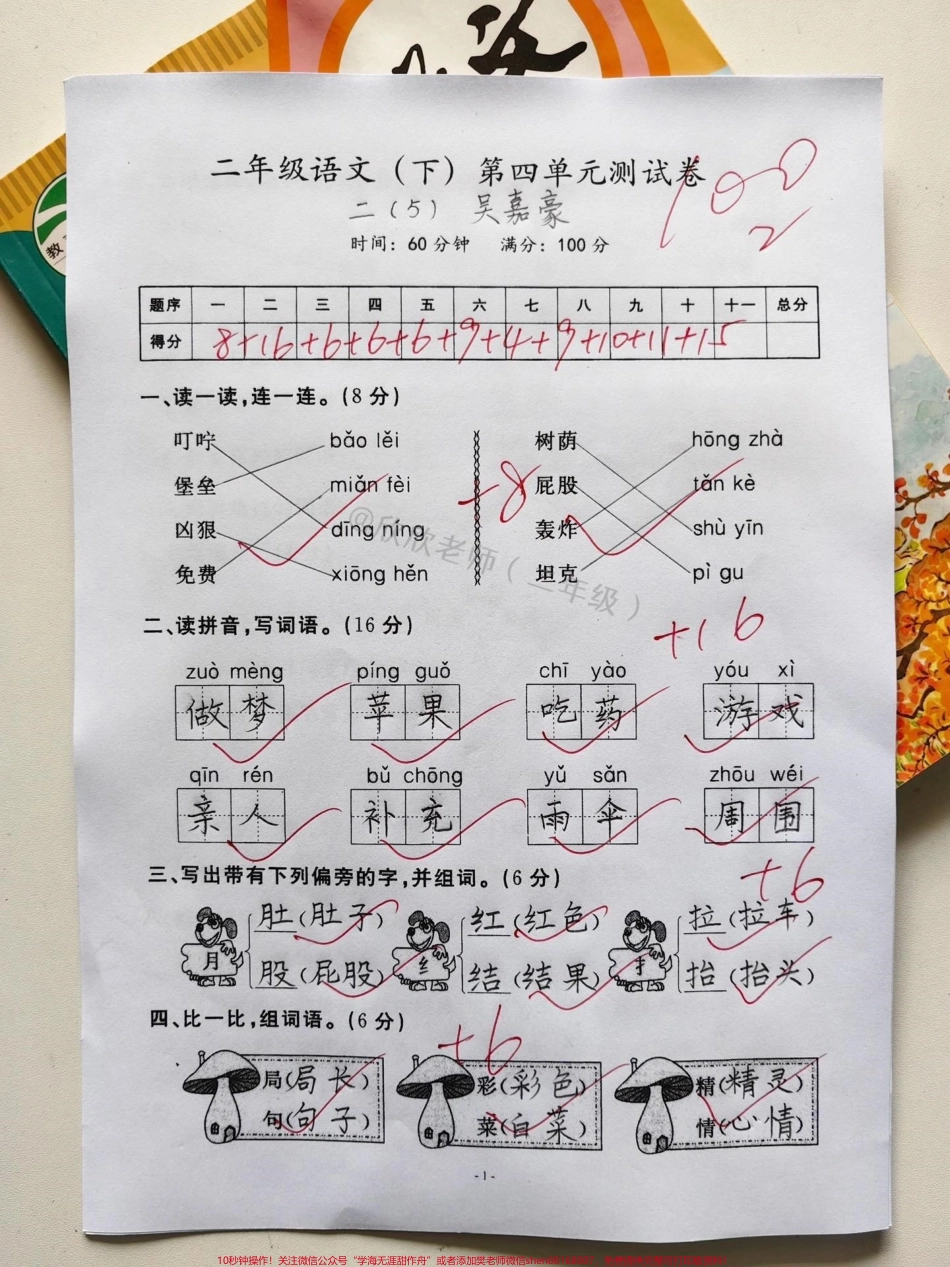 教
二年级语文（下）第四单元测试卷
二（5） 吴嘉豪
100
2
时间：60分钟 满分：100分
题序 一 二 三 四 五 六 七 八 九 十 十一 总分
得分 8+16+6+6+6+9+4+9+10+11+15
一、读一读，连一连。（8分）
叮咛 bǎo lěi 树荫 hōng zhà
堡垒 miǎn fèi 屁股 tǎn kè
凶狠 dīng níng 轰炸 shù yīn
免费 xiōng hěn 坦克 pì gu
+8
@欣欣老师（二年级）
二、读拼音，写词语。（16分）
+16
zuò mèng píng guǒ chī yào yóu xì
做梦 苹果 吃药 游戏
qīn rén bǔ chōng yǔ sǎn zhōu wéi
亲人 补充 雨伞 周围
三、写出带有下列偏旁的字，并组词。（6分）
+6
肚（肚子） 红（红色） 拉（拉车）
月 纟 扌
股（屁股） 结（结果） 抬（抬头）
四、比一比，组词语。（6分）
+6
局（局长） 彩（彩色） 精（精灵）
句（句子） 菜（白菜） 情（心情）
-1-
10秒钟操作！关注微信公众号“学海无涯甜作舟”或者添加樊老师微信